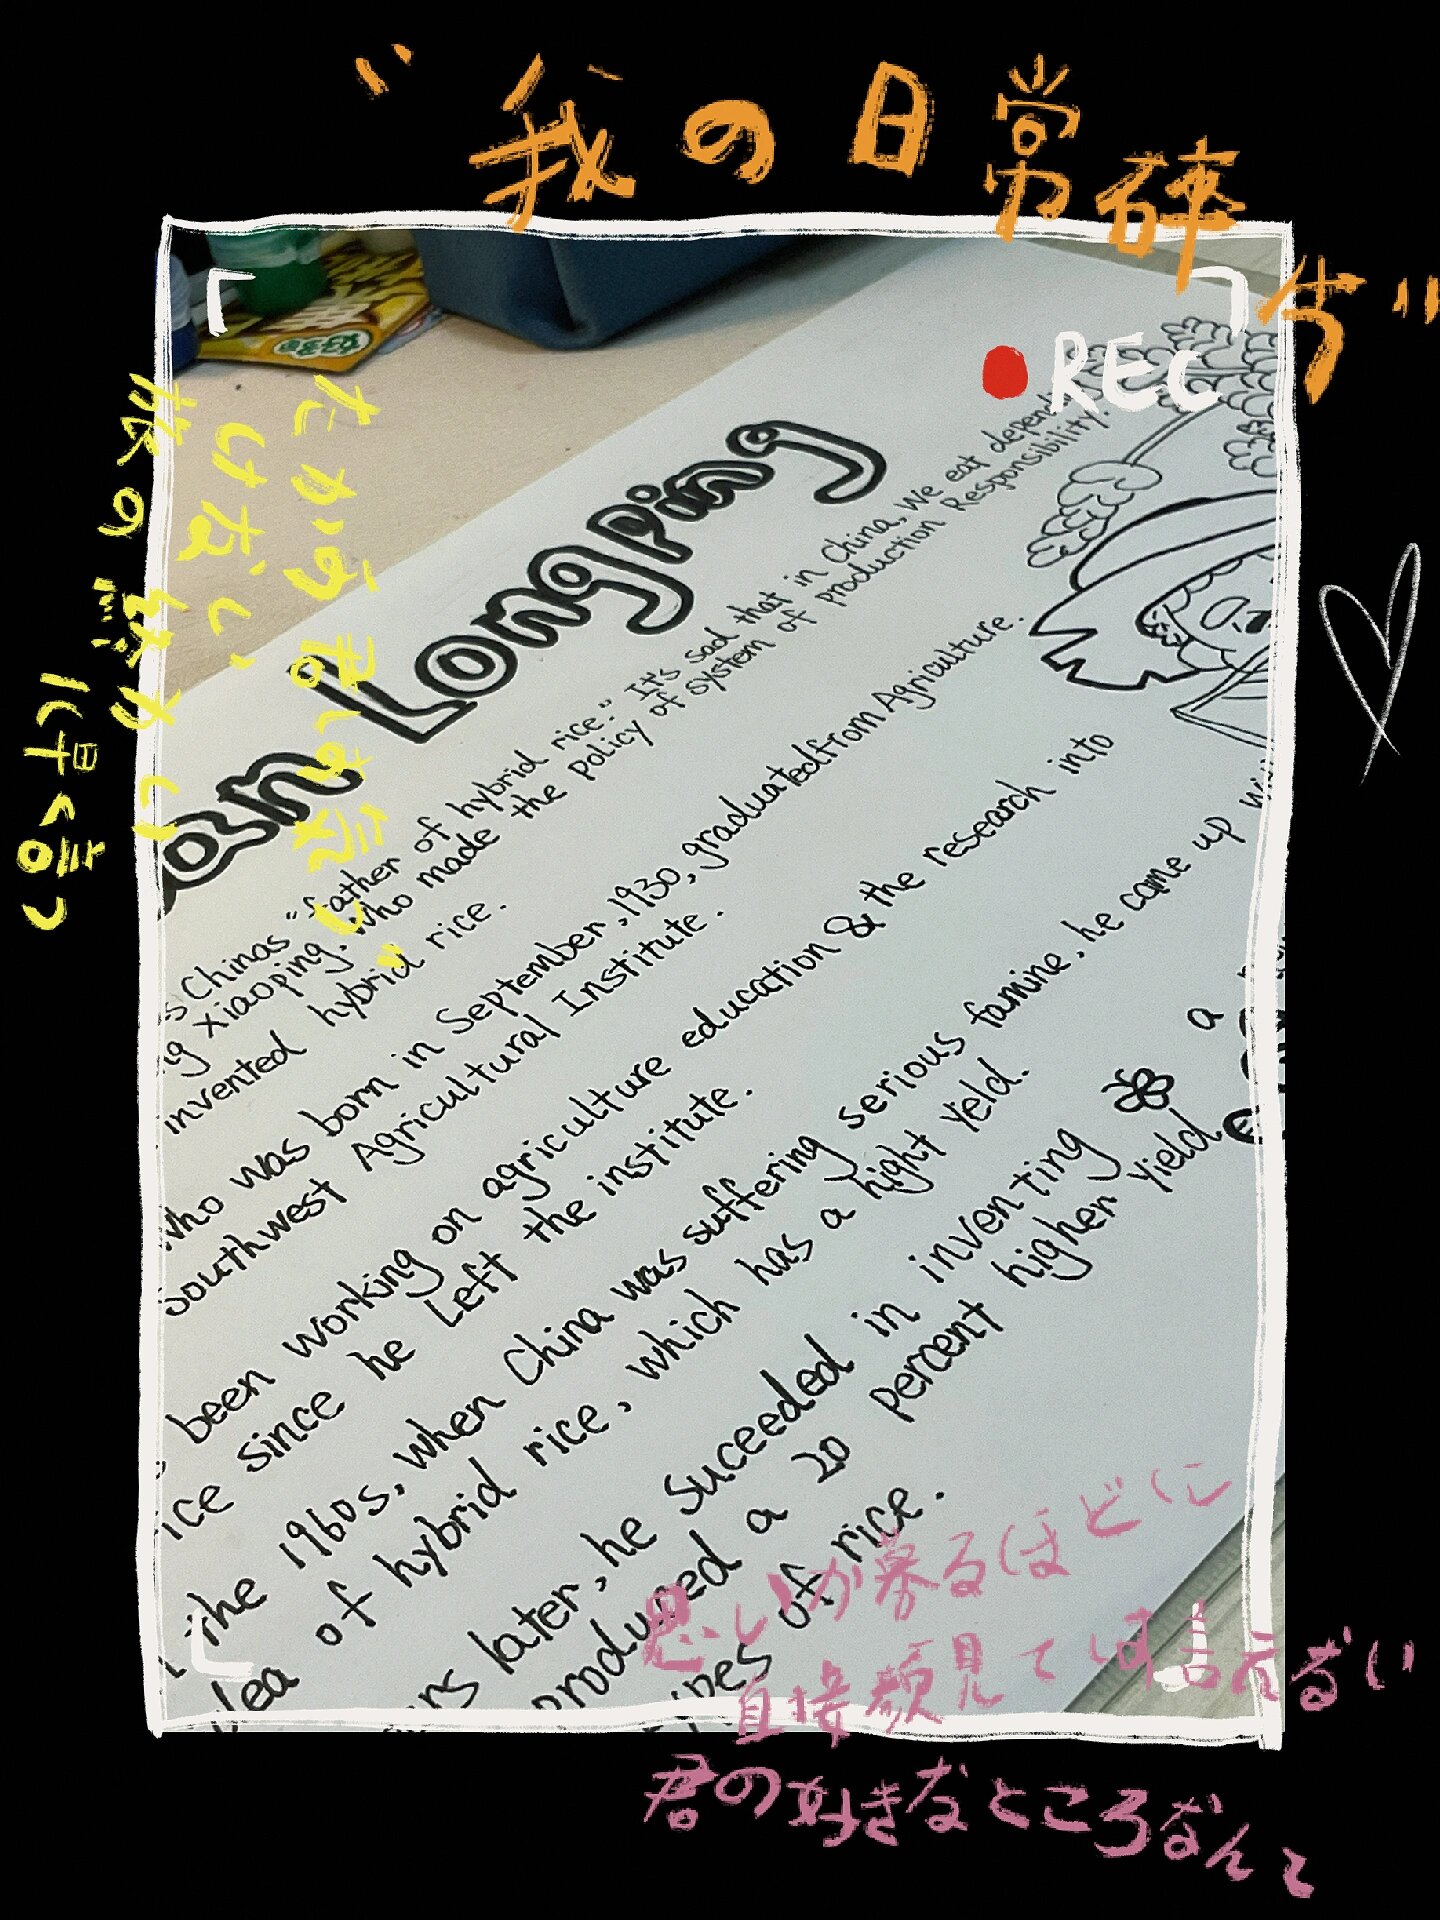 "我の日常碎步"
REC
Longping
s Chinas "father of hybrid rice." It's sad that in China, we eat depend
ng Xiaoping, who made the policy of system of production Responsibility.
invented hybrid rice.
who was born in September, 1930, graduatedfrom Agriculture.
Southwest Agricultural Institute.
been working on agriculture education & the research into
ice since he Left the institute.
the 1960s, when China was suffering serious famine, he came up wi
idea of hybrid rice, which has a hight Yeld. a
later, he Suceeded in inventing
produced a 20 percent higher Yield
types of rice.
だから君しか欲し"
けない
旅の
得る
思いが募るほどに
直接顔見ては言えない
君の好きなところなんて